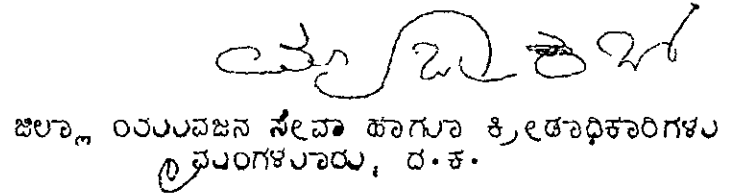 ಜಿಲ್ಲಾ ಯುವಜನ ಸೇವಾ ಹಾಗೂ ಕ್ರೀಡಾಧಿಕಾರಿಗಳು
ಮಂಗಳೂರು, ದ.ಕ.